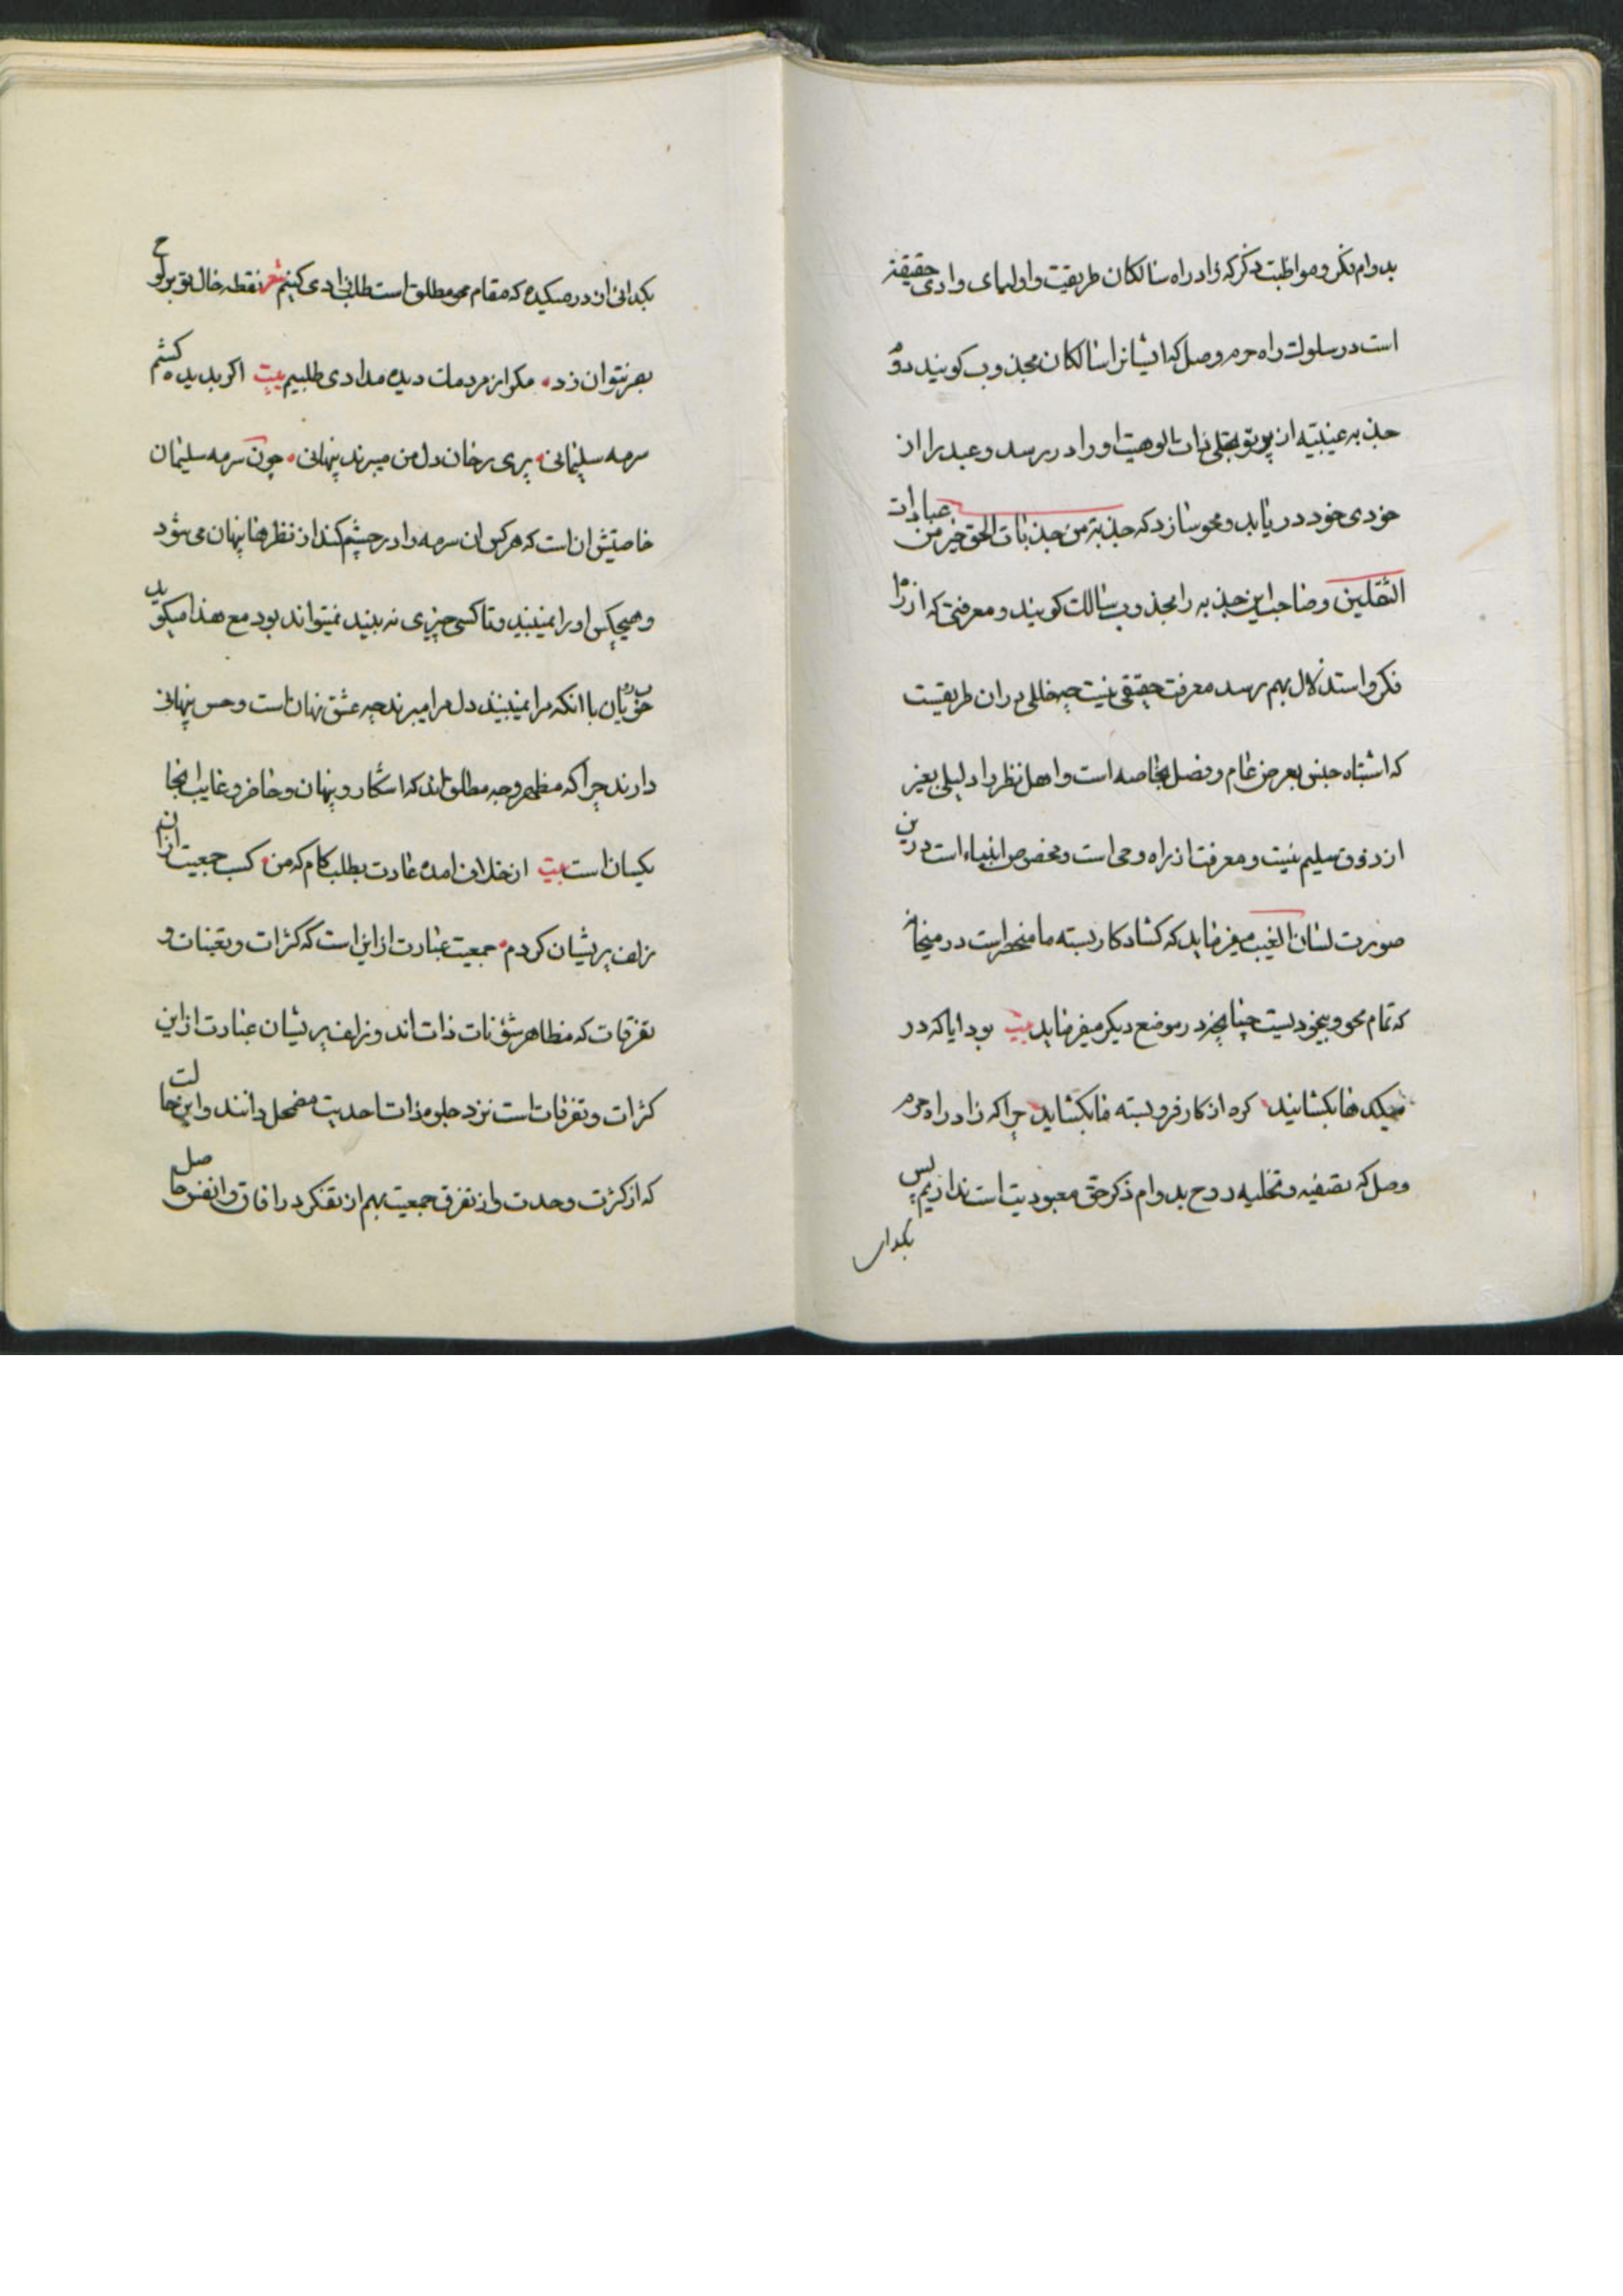 بدوام فکر و مواظبت ذکر که زاد راه سالکان طریقیت و اولیای وادی حقیقة
است در سلوک راه حرم وصل که ایشانرا سالکان مجذوب کویند دوم
جذبه عینیته از پرتو تجلی ذات بالوهیت او را در رسد و عبد را از
خودی خود در یابد و محو سازد که جذبة من جذبات الحق خیر من عبادات
الثقلین و صاحب این جذبه را مجذوب سالک کویند و معرفتی که از راه
فکر و استدلال بهم رسد معرفت حقیقی نیست چه خللی در ان طریقیست
که اشتباه جنس بعرض عام و فصل بخاصه است و اهل نظر را دلیلی بغیر
از ذوق سلیم نیست و معرفت از راه وحی است و مخصوص انبیاء است درین
صورت لسان الغیب میفرماید که کشاد کار بسته ما منحصر است در میخانه
که تمام محو و بیخودیست چنانچه در موضع دیکر میفرماید بیت بود ایا که در
میکدها بکشایند کره از کار فرو بسته ما بکشاید چرا که زاد راه حرم
وصل که تصفیه و تخلیه روح بدوام ذکر حق معبودیت است نداریم پس
بکدائی
بکدائی از در میکده که مقام محو مطلق است طلب زادی کنیم شعر نقطه خال تو بر لوح
بصر نتوان زد مکر از مردمک دیده مدادی طلبیم بیت اکر بدیده کشم
سرمه سلیمانی پری رخان دل من میبرند پنهانی چون سرمه سلیمان
خاصیتش ان است که هر کس ان سرمه را در چشم کند از نظرها پنهان می شود
و هیچکس او را نمیبیند و تا کسی چیزی نه بیند نمیتواند بود مع هذا میکوید
خوبرویان با انکه مرا نمیبینند دل مرا میبرند چه عشق نهان است و حسن پنهانی
دارند چرا که مظهر وجه مطلق اند که اشکار و پنهان و حاضر و غایب اینجا
یکسان است بیت از خلاف امد عادت بطلب کام که من کسب جمعیت از ان
زلف پریشان کردم جمعیت عبارت از این است که کثرات و تعینات و
تفرقات که مظاهر شؤنات ذات اند و زلف پریشان عبارت از این
کثرات و تفرقات است نزد جلوه ذات احدیت مضمحل دانند و این حالت
که از کثرت وحدت و از تفرق جمعیت بهم از تفکر در افاق و انفس حاصل